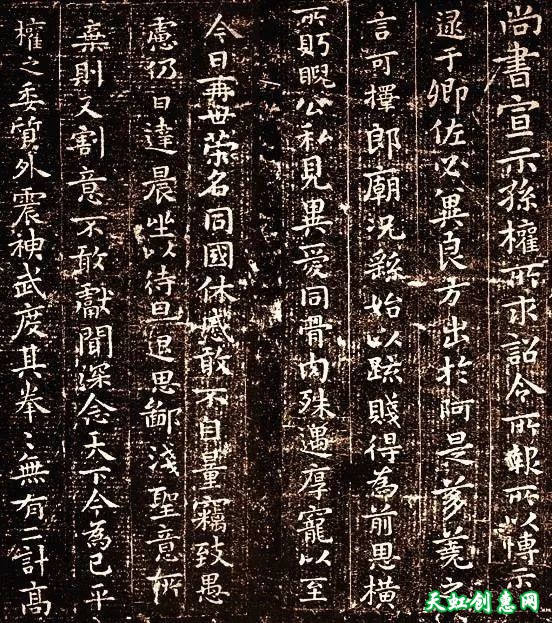 尚書宣示孫權所求詔令所報所以博示
逮于卿佐必冀良方出於阿是芻蕘之
言可擇郎廟況繇始以疏賤得為前恩橫
所眄睨公私見異愛同骨肉殊遇厚寵以至
今日再世榮名同國休慼敢不自量竊致愚
慮仍日達晨坐以待旦退思鄙淺聖意所
棄則又割意不敢獻聞深念天下今為已平
權之委質外震神武度其拳〻無有二計高
天虹创意网